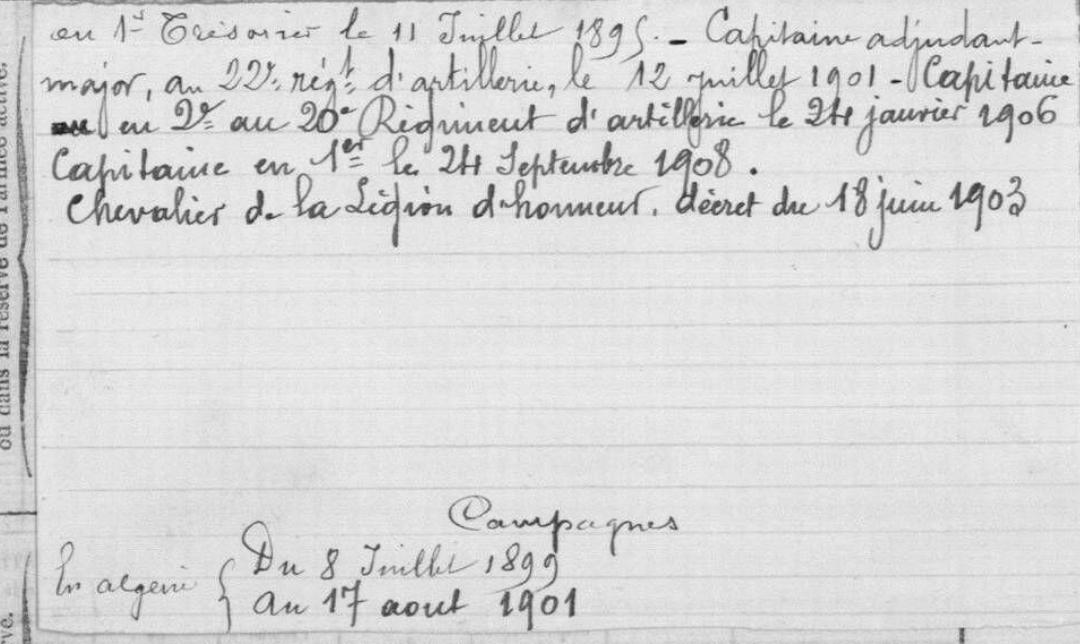 en 1er Trésorier le 11 Juillet 1895. - Capitaine adjudant-
major, au 22e régt d'artillerie, le 12 juillet 1901 - Capitaine
en 2e au 20e Régiment d'artillerie le 24 janvier 1906
Capitaine en 1er le 24 Septembre 1908.
Chevalier de la Légion d'honneur. décret du 18 juin 1903
Campagnes
En algerie { Du 8 Juillet 1899
au 17 aout 1901
ou dans la réserve de l'armée active.